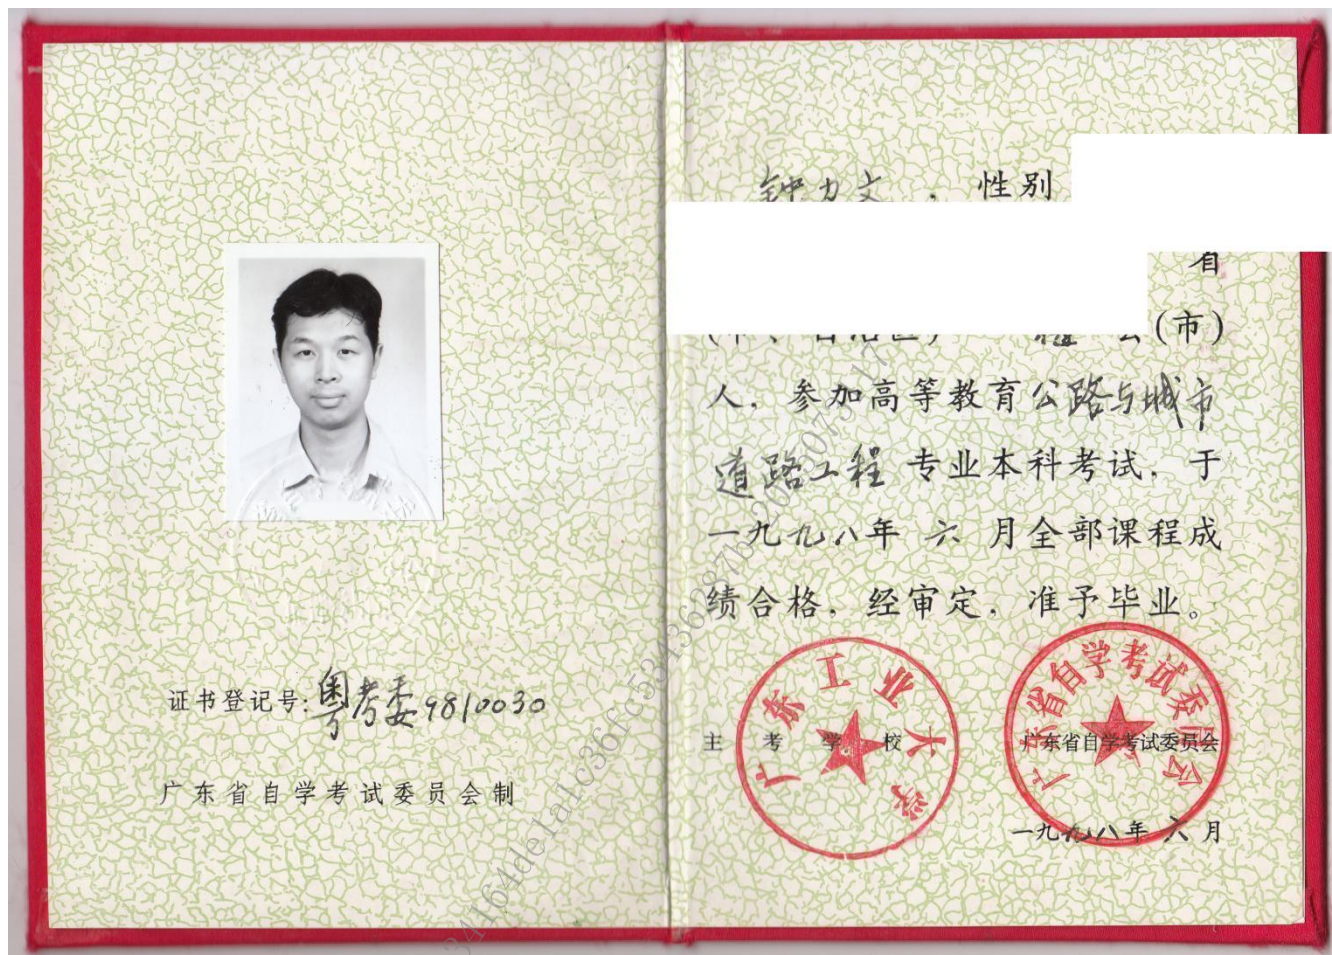 证书登记号：粤考委9810030
广东省自学考试委员会制
钟力文，性别
省
(市)
人，参加高等教育公路与城市
道路工程专业本科考试，于
一九九八年 六 月全部课程成
绩合格，经审定，准予毕业。
广东工业大学
主考学校
广东省自学考试委员会
广东省自学考试委员会
一九九八年六月